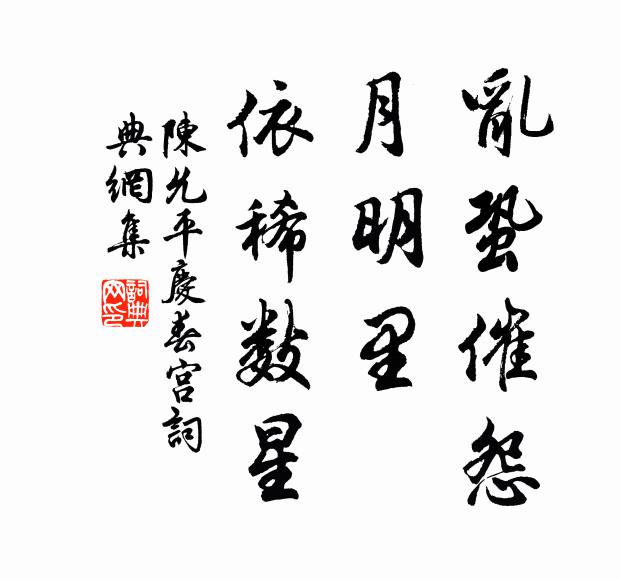 亂蛩催怨
月明里
依稀數星
陳允平慶春宮詞
典網集
詞典網印